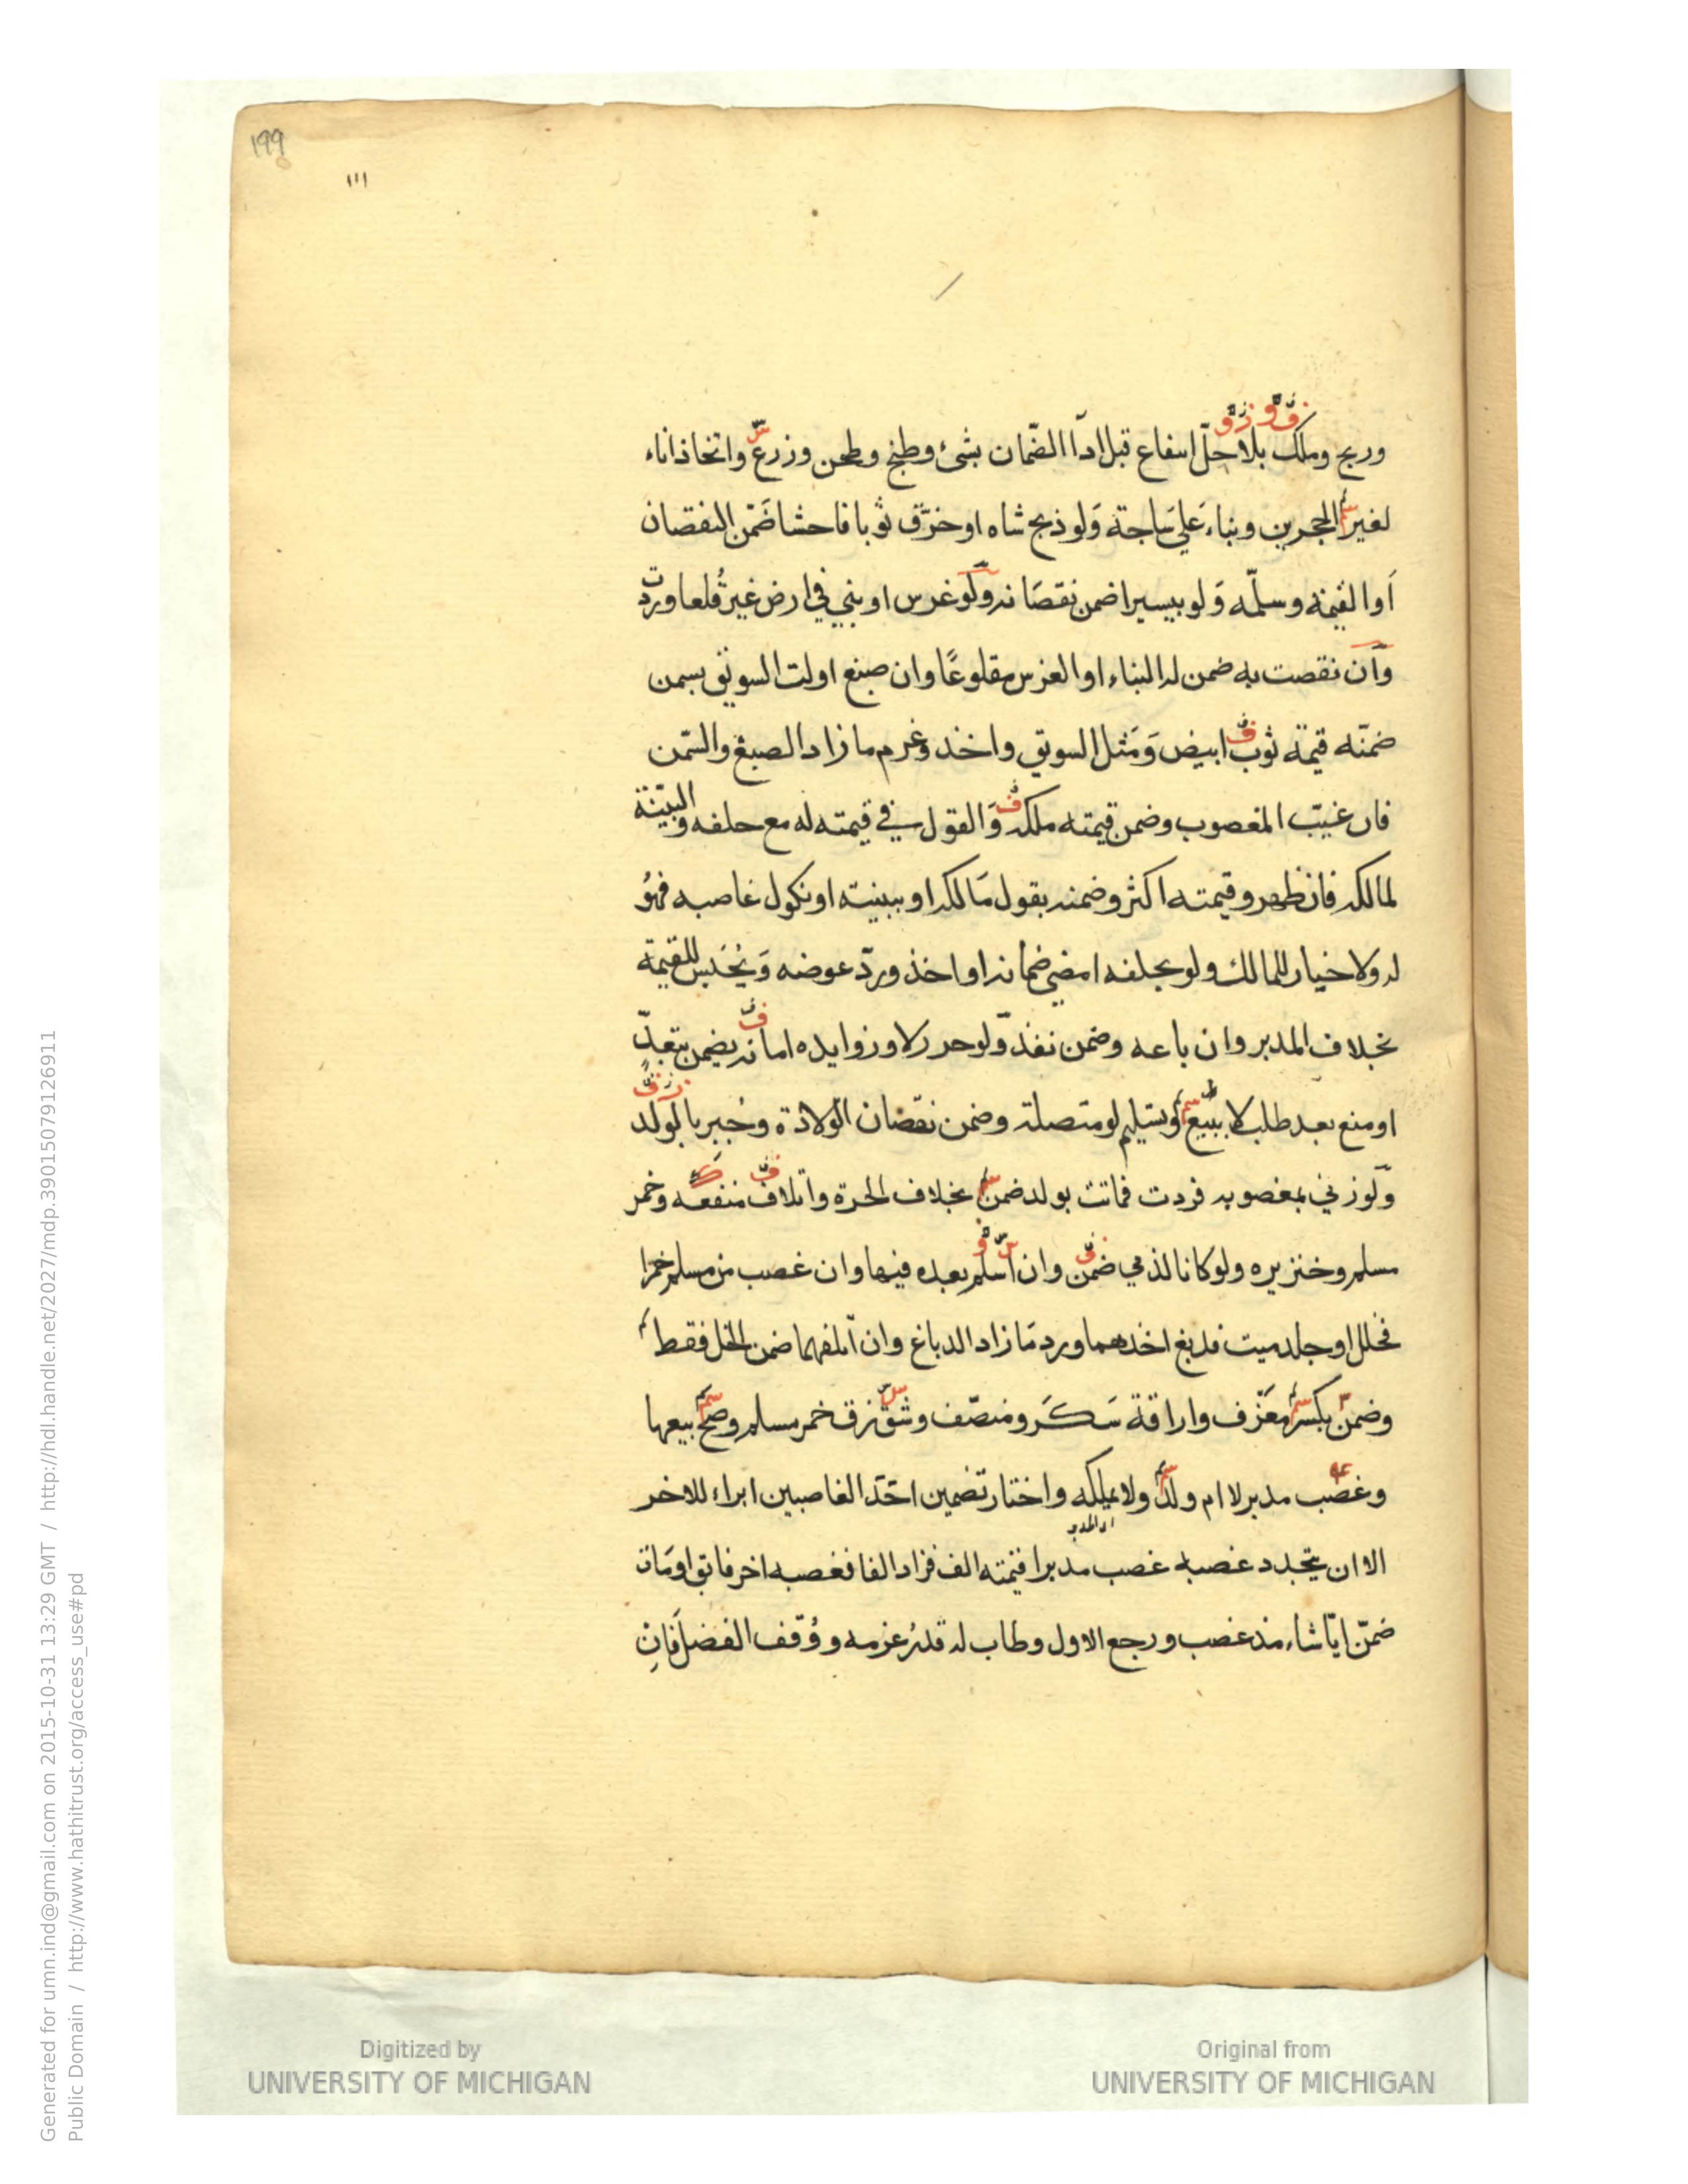 ١٩٩
١١١
وربح وملك بلا حلّ انتفاع قبل ادآ الضّمان بشئ وطبخ وطحن وزرع واتخاذ اناء
لغير الحجرين وبناء على سَاجة وَلو ذبح شاه او خرّق ثوبا فاحشا ضَمّن النقصان
اَو القيمة وسلّمه وَلو بيسير ا ضمن نقصَانه ولَو غرس او بني في ارض غير قُلعا وردّت
وآن نقصت به ضمن له البناء او الغرس مقلوعًا وان صبغ او لت السويق بسمن
ضمنّه قيمة ثوب ابيض وَمَثل السويق واخذ وغرم ما زاد الصبغ والسّمن
فان غيّب المغصوب وضمن قيمته ملكه وَالقول في قيمته له مع حلفه والبيّنة
لمالكه فان ظهر وقيمته اكثر وضمنه بقول مَالكه او ببينته او نكول غاصبه فهوُ
له ولا خيار للمالك ولو بحلفه امضي ضمانه او اخذ وردّ عوضه وَيُحَبس للقيمة
بخلاف المدبر وان باعه وضمن نفذ وَلو حرر لا وزوايده امانه يضمن بتعدٍّ
او منع بعد طلب لا ببيع وتسليم لو متصلة وضمن نقصَان الوَلادة وجُبر بالولد
وَلو زني بمغصوبه فردت فماتت بولد ضمن بخلاف الحرة واتلاف منفعه وخمر
مسلم وخنزيره ولو كانا لذمي ضمن وان اسلم بعده فيها وان غصب من مسلم خمرا
فخلل او جلد ميت فدبغ اخذهما ورد مَا زاد الدباغ وان اتلفهما ضمن الخل فقط
وضمن بكسر مَعَزف واراقة سَكَر ومنصّف وشق زق خمر مسلم وصح بيعها
وغصب مدبر لا ام ولد ولا يملكه واختار تضمين احَد الغاصبين ابراء للاخر
اى المدبر
الا ان يتجدد غصبه غصب مدبرا قيمته الف فزاد الفا فغصبه اخر فابق او مَات
ضمّن ايّا شاء مذ غصب ورجع الاول وطاب له قدرُ غرمه ووُقّف الفضل فَانِ
Digitized by
UNIVERSITY OF MICHIGAN
Original from
UNIVERSITY OF MICHIGAN
Generated for umn.ind@gmail.com on 2015-10-31 13:29 GMT / http://hdl.handle.net/2027/mdp.39015079126911
Public Domain / http://www.hathitrust.org/access_use#pd